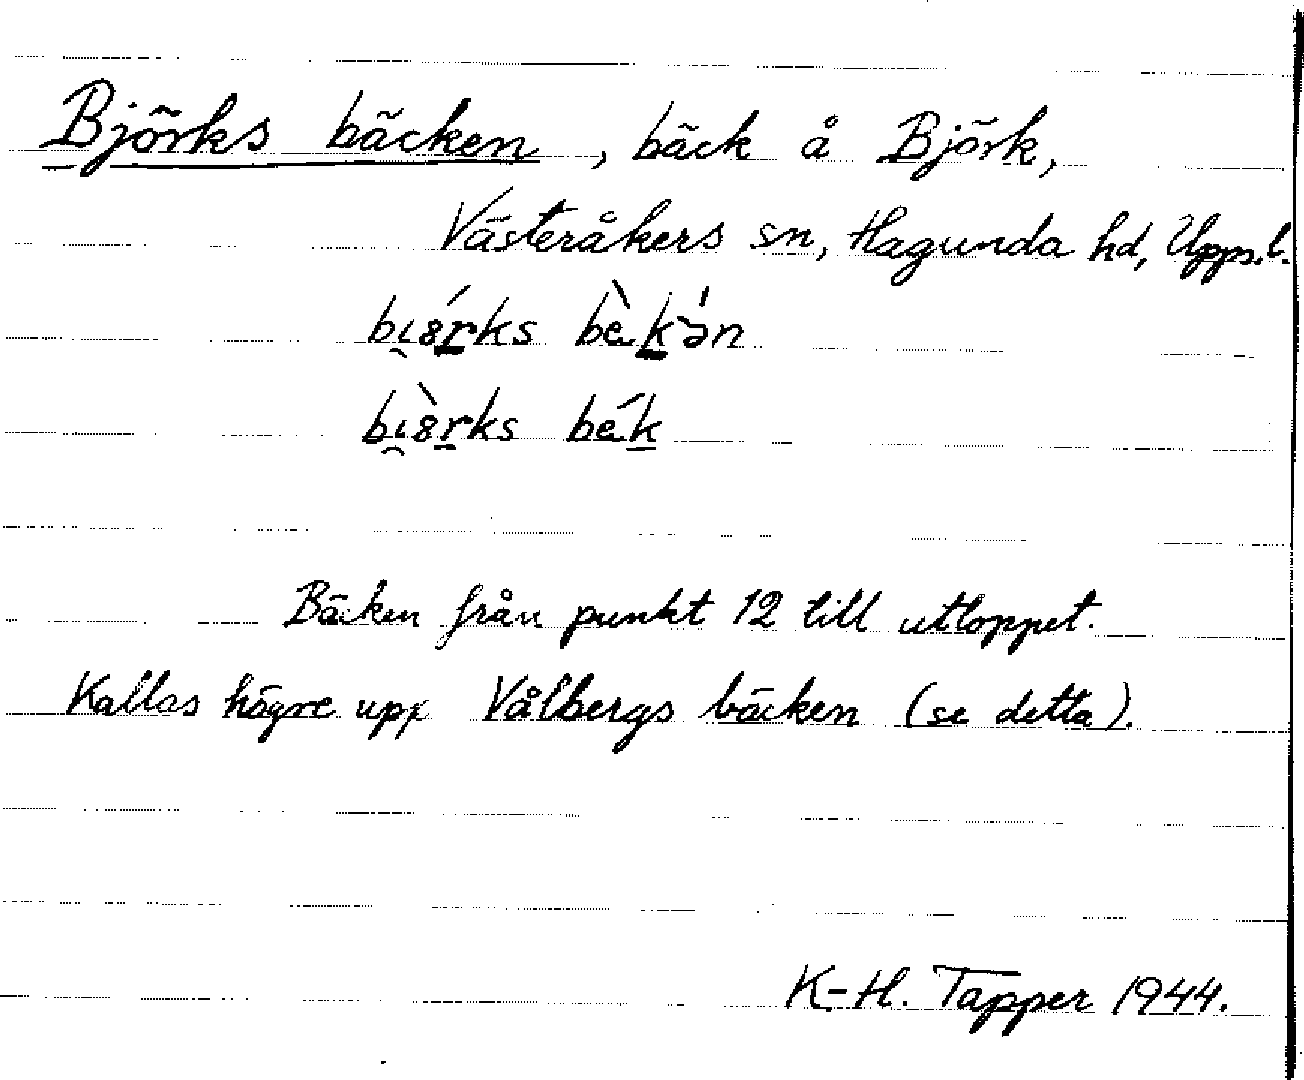 Björks bäcken, bäck å Björk,
Västeråkers sn, Hagunda hd, Uppl.
bi̯8́rks bὲkə̍n
bi̯8̀rks bέk
Bäcken från punkt 12 till utloppet.
Kallas högre upp Vålbergs bäcken (se detta).
K-H. Tapper 1944.